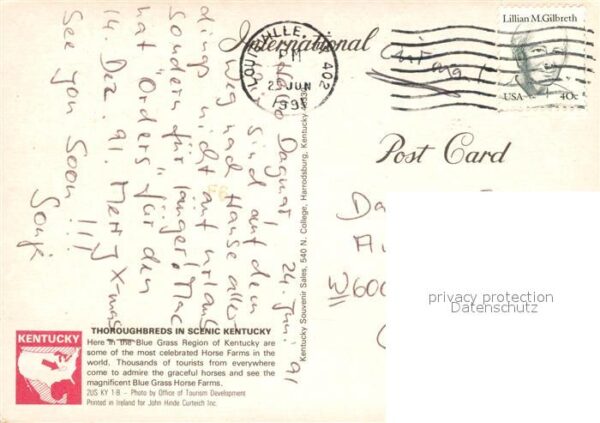 International
Post Card
LOUISVILLE, KY 402
PM
25 JUN
1991
Lillian M. Gilbreth
USA
40c
air mail
24. Juni '91
Hallo Dagmar!
sind auf dem
Weg nach Hause aller-
dings nicht auf urlaub
sondern für länger! Mac
hat "Orders" für den
14. Dez. 91. Merry X-mas
See you soon !!!
Kentucky Souvenir Sales, 540 N. College, Harrodsburg, Kentucky
Da
W 600
privacy protection
Datenschutz
KENTUCKY
THOROUGHBREDS IN SCENIC KENTUCKY
Here in the Blue Grass Region of Kentucky are
some of the most celebrated Horse Farms in the
world. Thousands of tourists from everywhere
come to admire the graceful horses and see the
magnificent Blue Grass Horse Farms.
2US KY 1-8 - Photo by Office of Tourism Development
Printed in Ireland for John Hinde Curteich Inc.